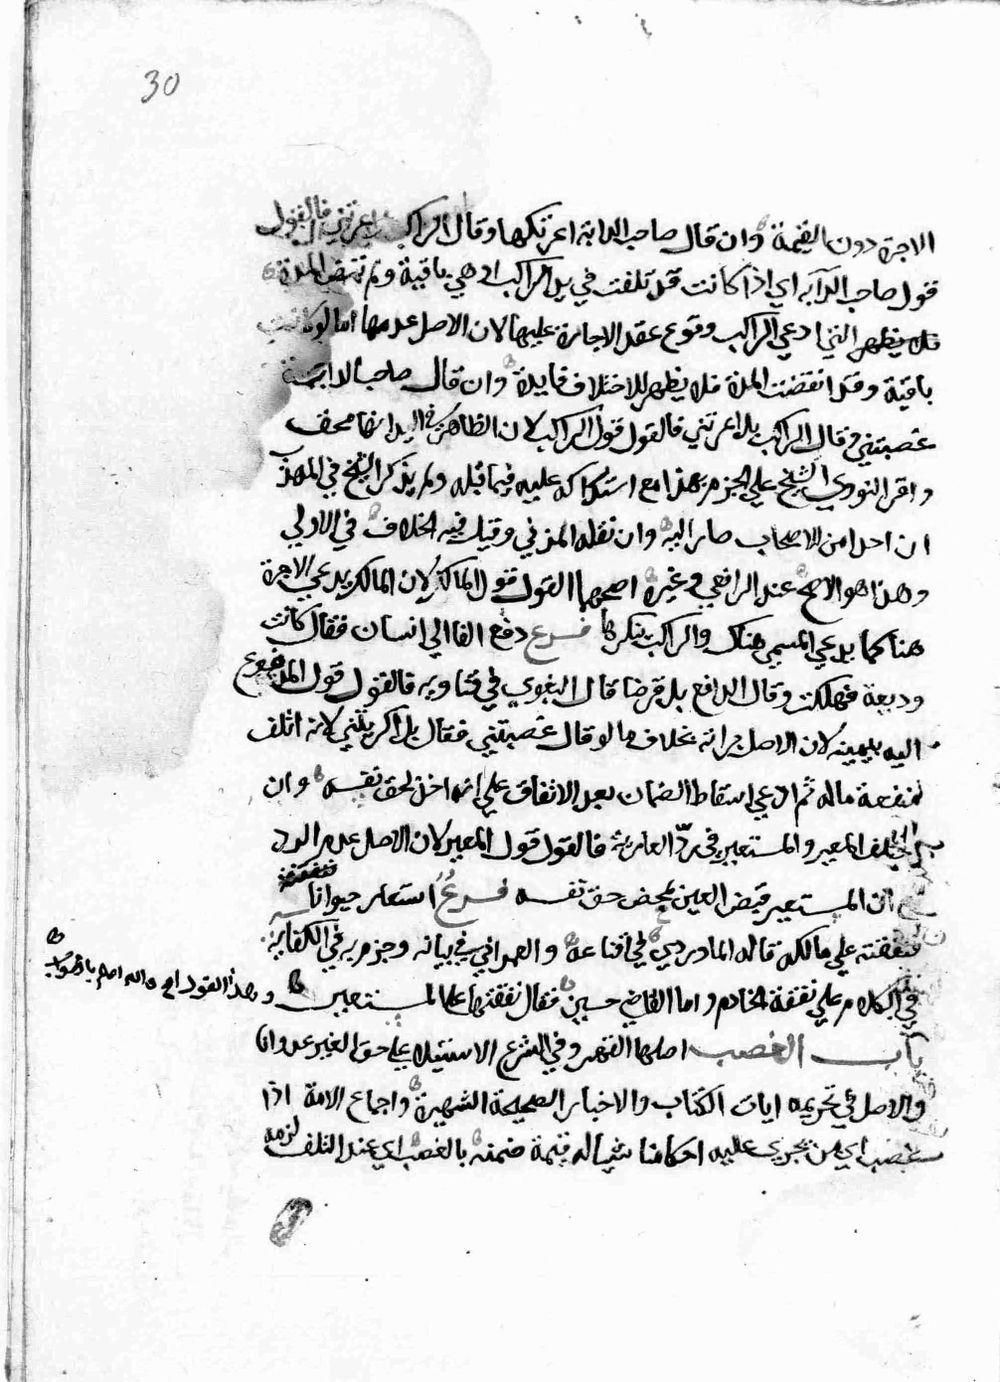 30
الاجرة دون القيمة وان قال صاحب الدابة اعرتكها وقال الراكب فالقول
قول صاحب الدابه اي اذا كانت قد تلفت في يد الراكب او هي باقية ولم تمض المدة
فلا يظهر ادعي الراكب وقوع عقد الاجارة عليها لان الاصل عدمها اما لو كانت
باقية وقد انقضت المدة فلا يظهر للاختلاف فايدة وان قال صاحب الدابة
غصبتني وقال الراكب بل اعرتني فالقول قول الراكب لان الظاهر في اليد انها محق
واقر النووي الشيخ علي الجزم بهذا مع استدراكه عليه فيما قبله ولم يذكر الشيخ في المهذب
ان احدا من الاصحاب صار اليه وان نقله المزني وقيل فيه الخلاف في الاولي
وهذا هو الاصح عند الرافعي وغيره اصحهما القول قول المالك لان المالك يدعي الاجرة
هنا كما يدعي المسمي هناك والراكب ينكرها فرع دفع الفا الي انسان فقال كانت
وديعة فهلكت وقال الدافع بل قرضا قال البغوي في فتاويه فالقول قول المدفوع
اليه بيمينه لان الاصل براته بخلاف ما لو قال غصبتني فقال بل اكريتني لانه اتلف
منفعة ماله ثم ادعي اسقاط الضمان بعد الاتفاق علي انه اخذ لحق نفسه وان
اختلف المعير والمستعير في ردّ العارية فالقول قول المعير لان الاصل عدم الرد
ان المستعير قبض العين لمحض حق نفسه فرع استعار حيوانا
فنفقته علي مالكه قاله الماوردي في اقناعه والعمراني في بيانه وجزم به في الكفاية
في الكلام علي نفقة الخادم واما القاضي حسين فقال نفقتها علي المستعير
وهذا القول والله اعلم بالصواب
باب الغصب اصلها القهر وفي الشرع الاستيلا علي حق الغير عدوانا
والاصل في تحريمه ايات الكتاب والاخبار الصحيحة الشهيرة واجماع الامة اذا
غصب اي من تجري عليه احكامنا شيا له قيمة ضمنه بالغصب اي عند التلف لزمه